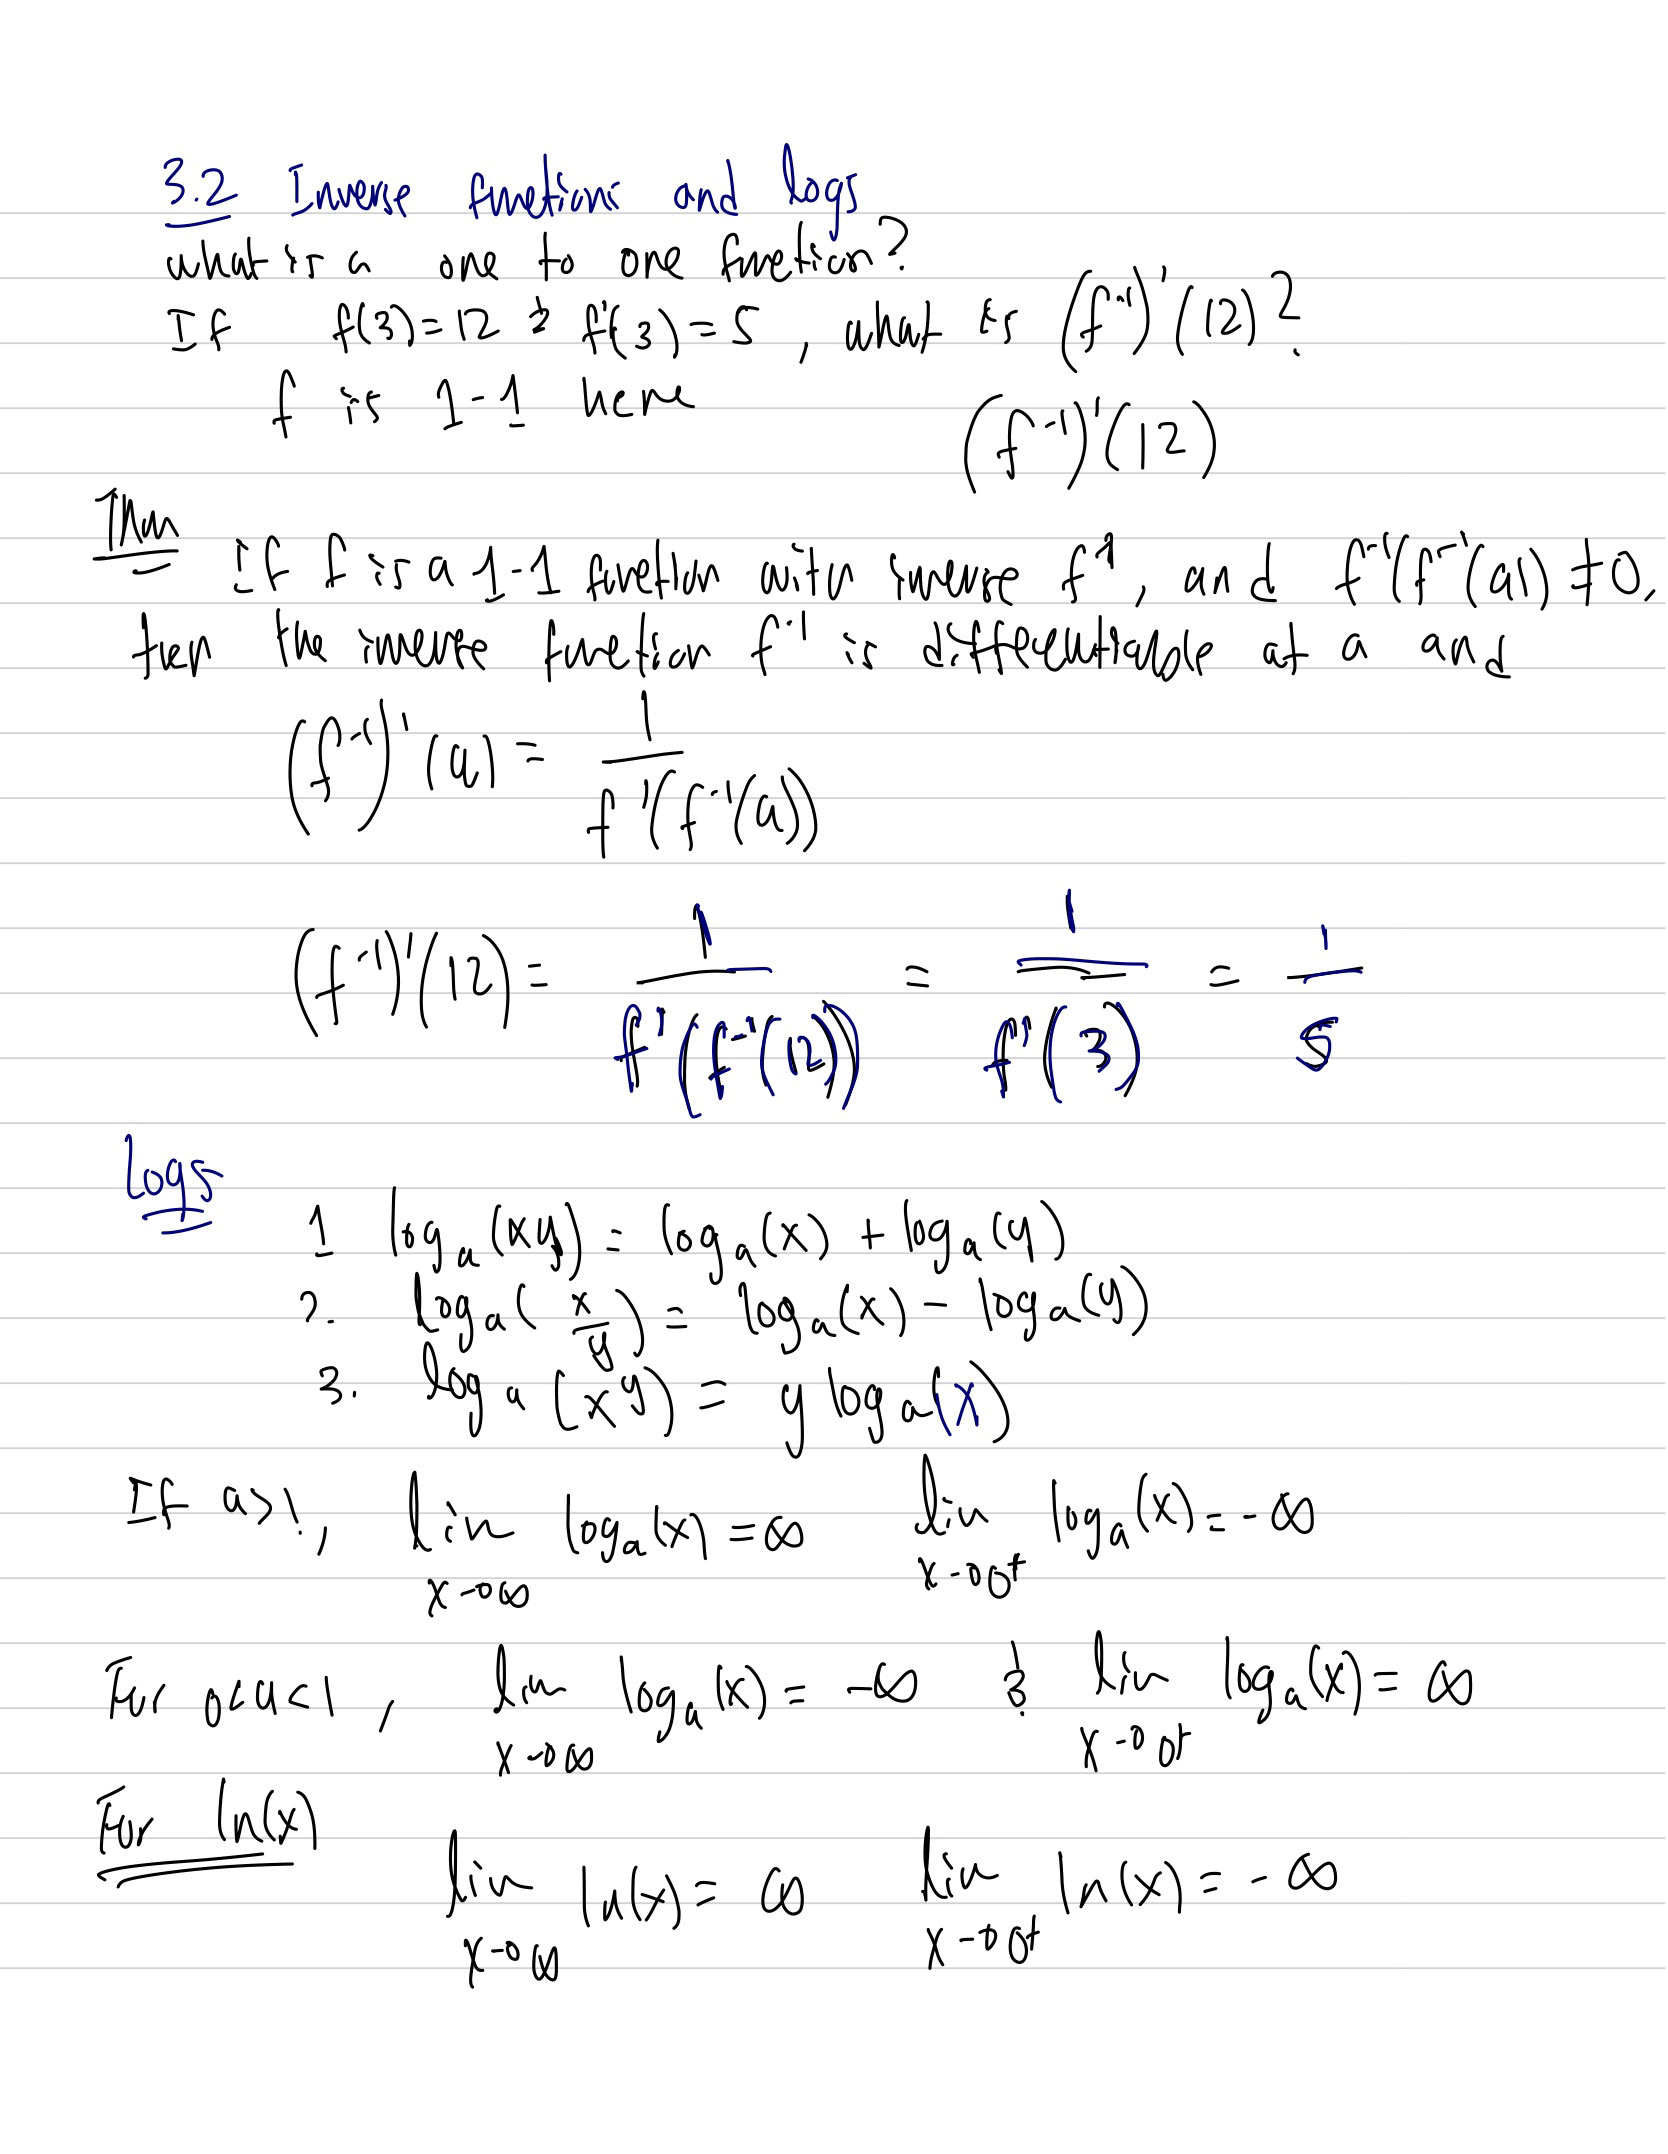 3.2 Inverse functions and logs
what is a one to one function?
If f(3)=12 & f'(3)=5, what is (f⁻¹)'(12)?
f is 1-1 here
(f⁻¹)'(12)
Thm
If f is a 1-1 function with inverse f⁻¹, and f⁻¹(f⁻¹(a)) ≠ 0,
then the inverse function f⁻¹ is differentiable at a and
(f⁻¹)'(a) = 1/f'(f⁻¹(a))
(f⁻¹)'(12) = 1/f'(f⁻¹(12)) = 1/f'(3) = 1/5
Logs
1 logₐ(xy) = logₐ(x) + logₐ(y)
2. logₐ(x/y) = logₐ(x) - logₐ(y)
3. logₐ(x^y) = y logₐ(x)
If a>1, lim x→∞ logₐ(x) = ∞ lim x→0⁺ logₐ(x) = -∞
For 0<a<1, lim x→∞ logₐ(x) = -∞ & lim x→0⁺ logₐ(x) = ∞
For ln(x)
lim x→∞ ln(x) = ∞ lim x→0⁺ ln(x) = -∞